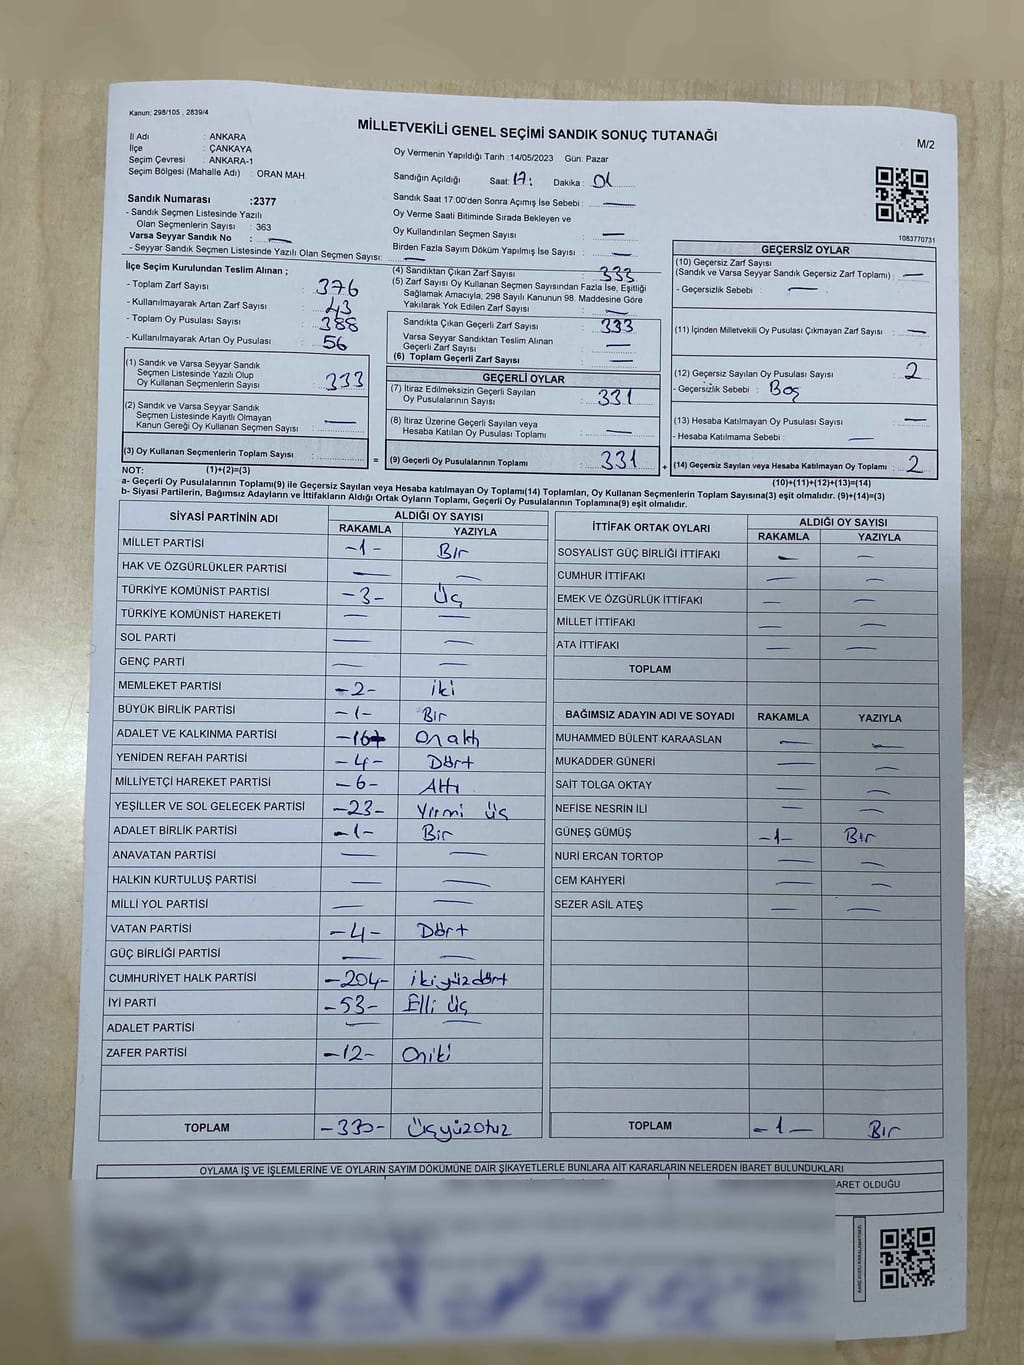 Kanun: 298/105 , 2839/4
MİLLETVEKİLİ GENEL SEÇİMİ SANDIK SONUÇ TUTANAĞI
M/2
İl Adı : ANKARA
İlçe : ÇANKAYA
Seçim Çevresi : ANKARA-1
Seçim Bölgesi (Mahalle Adı) : ORAN MAH.
Oy Vermenin Yapıldığı Tarih :14/05/2023 Gün: Pazar
Sandığın Açıldığı Saat: 17: Dakika : 01
Sandık Saat 17:00'den Sonra Açımış İse Sebebi : —
Oy Verme Saati Bitiminde Sırada Bekleyen ve
Oy Kullandırılan Seçmen Sayısı : —
Birden Fazla Sayım Döküm Yapılmış İse Sayısı : —
Sandık Numarası :2377
- Sandık Seçmen Listesinde Yazılı
Olan Seçmenlerin Sayısı : 363
Varsa Seyyar Sandık No : —
- Seyyar Sandık Seçmen Listesinde Yazılı Olan Seçmen Sayısı: —
1083770731
İlçe Seçim Kurulundan Teslim Alınan ;
- Toplam Zarf Sayısı : 376
- Kullanılmayarak Artan Zarf Sayısı : 43
- Toplam Oy Pusulası Sayısı : 388
- Kullanılmayarak Artan Oy Pusulası : 56
(1) Sandık ve Varsa Seyyar Sandık
Seçmen Listesinde Yazılı Olup
Oy Kullanan Seçmenlerin Sayısı : 333
(2) Sandık ve Varsa Seyyar Sandık
Seçmen Listesinde Kayıtlı Olmayan
Kanun Gereği Oy Kullanan Seçmen Sayısı : —
(3) Oy Kullanan Seçmenlerin Toplam Sayısı :
(4) Sandıktan Çıkan Zarf Sayısı : 333
(5) Zarf Sayısı Oy Kullanan Seçmen Sayısından Fazla İse, Eşitliği
Sağlamak Amacıyla, 298 Sayılı Kanunun 98. Maddesine Göre
Yakılarak Yok Edilen Zarf Sayısı : —
Sandıkta Çıkan Geçerli Zarf Sayısı : 333
Varsa Seyyar Sandıktan Teslim Alınan
Geçerli Zarf Sayısı : —
(6) Toplam Geçerli Zarf Sayısı : —
GEÇERLİ OYLAR
(7) İtiraz Edilmeksizin Geçerli Sayılan
Oy Pusulalarının Sayısı : 331
(8) İtiraz Üzerine Geçerli Sayılan veya
Hesaba Katılan Oy Pusulası Toplamı : —
= (9) Geçerli Oy Pusulalarının Toplamı : 331
GEÇERSİZ OYLAR
(10) Geçersiz Zarf Sayısı
(Sandık ve Varsa Seyyar Sandık Geçersiz Zarf Toplamı) : —
- Geçersizlik Sebebi : —
(11) İçinden Milletvekili Oy Pusulası Çıkmayan Zarf Sayısı : —
(12) Geçersiz Sayılan Oy Pusulası Sayısı : 2
- Geçersizlik Sebebi : Boş
(13) Hesaba Katılmayan Oy Pusulası Sayısı : —
- Hesaba Katılmama Sebebi : —
+ (14) Geçersiz Sayılan veya Hesaba Katılmayan Oy Toplamı : 2
NOT: (1)+(2)=(3)
(10)+(11)+(12)+(13)=(14)
a- Geçerli Oy Pusulalarının Toplamı(9) ile Geçersiz Sayılan veya Hesaba katılmayan Oy Toplamı(14) Toplamları, Oy Kullanan Seçmenlerin Toplam Sayısına(3) eşit olmalıdır. (9)+(14)=(3)
b- Siyasi Partilerin, Bağımsız Adayların ve İttifakların Aldığı Ortak Oyların Toplamı, Geçerli Oy Pusulalarının Toplamına(9) eşit olmalıdır.
SİYASİ PARTİNİN ADI ALDIĞI OY SAYISI
RAKAMLA YAZIYLA
MİLLET PARTİSİ -1- Bir
HAK VE ÖZGÜRLÜKLER PARTİSİ — —
TÜRKİYE KOMÜNİST PARTİSİ -3- Üç
TÜRKİYE KOMÜNİST HAREKETİ — —
SOL PARTİ — —
GENÇ PARTİ — —
MEMLEKET PARTİSİ -2- iki
BÜYÜK BİRLİK PARTİSİ -1- Bir
ADALET VE KALKINMA PARTİSİ -16- Onaltı
YENİDEN REFAH PARTİSİ -4- Dört
MİLLİYETÇİ HAREKET PARTİSİ -6- Altı
YEŞİLLER VE SOL GELECEK PARTİSİ -23- Yirmi üç
ADALET BİRLİK PARTİSİ -1- Bir
ANAVATAN PARTİSİ — —
HALKIN KURTULUŞ PARTİSİ — —
MİLLİ YOL PARTİSİ — —
VATAN PARTİSİ -4- Dört
GÜÇ BİRLİĞİ PARTİSİ — —
CUMHURİYET HALK PARTİSİ -204- ikiyüzdört
İYİ PARTİ -53- Elli üç
ADALET PARTİSİ — —
ZAFER PARTİSİ -12- Oniki
TOPLAM -330- Üçyüzotuz
İTTİFAK ORTAK OYLARI ALDIĞI OY SAYISI
RAKAMLA YAZIYLA
SOSYALİST GÜÇ BİRLİĞİ İTTİFAKI — —
CUMHUR İTTİFAKI — —
EMEK VE ÖZGÜRLÜK İTTİFAKI — —
MİLLET İTTİFAKI — —
ATA İTTİFAKI — —
TOPLAM
BAĞIMSIZ ADAYIN ADI VE SOYADI RAKAMLA YAZIYLA
MUHAMMED BÜLENT KARAASLAN — —
MUKADDER GÜNERİ — —
SAİT TOLGA OKTAY — —
NEFİSE NESRİN İLİ — —
GÜNEŞ GÜMÜŞ -1- Bir
NURİ ERCAN TORTOP — —
CEM KAHYERİ — —
SEZER ASİL ATEŞ — —
TOPLAM -1- Bir
OYLAMA İŞ VE İŞLEMLERİNE VE OYLARIN SAYIM DÖKÜMÜNE DAİR ŞİKAYETLERLE BUNLARA AİT KARARLARIN NELERDEN İBARET BULUNDUKLARI
ARET OLDUĞU